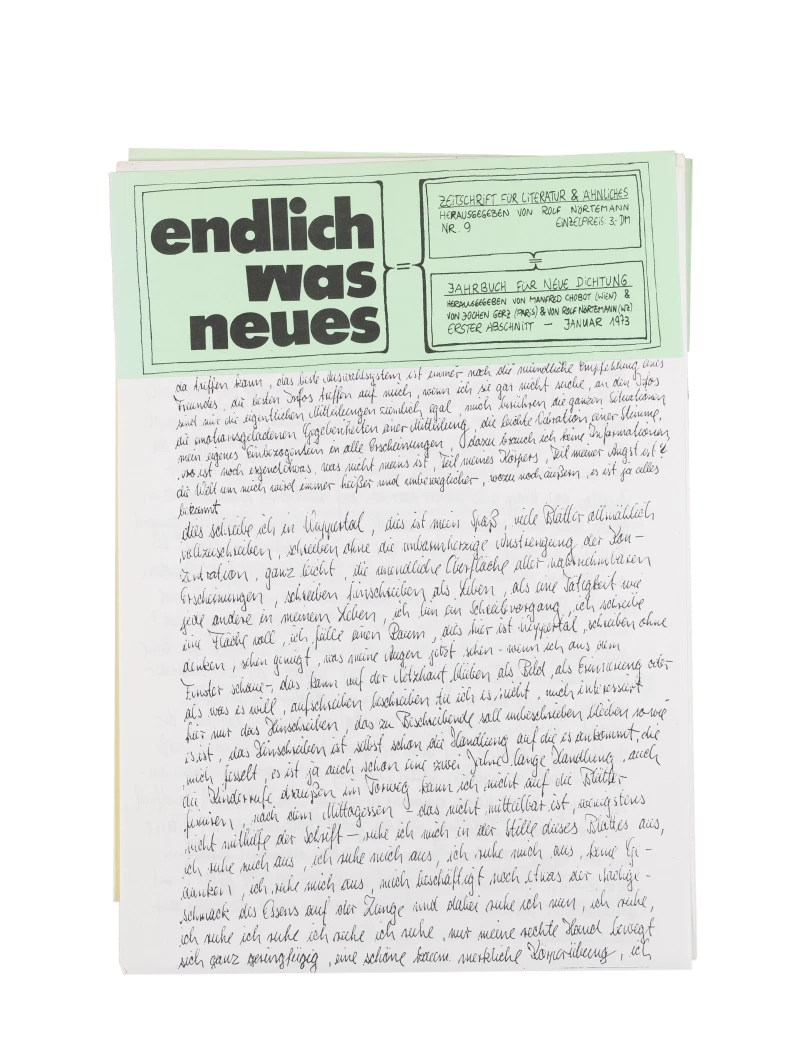 endlich
was
neues
=
ZEITSCHRIFT FÜR LITERATUR & ÄHNLICHES
HERAUSGEGEBEN VON ROLF NÖRTEMANN
NR. 9 EINZELPREIS: 3,- DM
=
JAHRBUCH FÜR NEUE DICHTUNG
HERAUSGEGEBEN VON MANFRED CHOBOT (WIEN) &
VON JOCHEN GERZ (PARIS) & VON ROLF NÖRTEMANN (WZ)
ERSTER ABSCHNITT — JANUAR 1973
da treffen kann, das beste Auswahlsystem ist immer noch die mündliche Empfehlung eines
Freundes, die besten Infos treffen auf mich, wenn ich sie gar nicht suche, an den Infos
sind mir die eigentlichen Mitteilungen ziemlich egal, mich berühren die ganzen Situationen
die emotionsgeladenen Gegebenheiten einer Mitteilung, die leichte Vibration einer Stimme,
mein eigenes Einbezogensein in alle Erscheinungen, dazu brauch ich keine Informationen,
wo ist noch irgendetwas, was nicht meins ist, Teil meines Körpers, Teil meiner Angst ist?
die Welt um mich wird immer heißer und unbeweglicher, wozu noch äußern, es ist ja alles
bekannt
dies schreibe ich in Wuppertal, dies ist mein Spaß, viele Blätter allmählich
vollzuschreiben, schreiben ohne die unbarmherzige Anstrengung der Kon-
zentration, ganz leicht, die unendliche Oberfläche aller wahrnehmbaren
Erscheinungen, schreiben hinschreiben als Leben, als eine Tätigkeit wie
jede andere in meinem Leben, ich bin ein Schreibvorgang, ich schreibe
eine Fläche voll, ich fülle einen Raum, dies hier ist Wuppertal, schreiben ohne
denken, sehen genügt, was meine Augen jetzt sehen - wenn ich aus dem
Fenster schaue -, das kann auf der Netzhaut bleiben als Bild, als Erinnerung oder
als was es will, aufschreiben beschreiben tu ich es nicht, mich interessiert
hier nur das Hinschreiben, das zu Beschreibende soll unbeschrieben bleiben so wie
es ist, das Hinschreiben ist selbst schon die Handlung auf die es ankommt, die
mich fesselt, es ist ja auch schon eine zwei Jahre lange Handlung, auch
die Kinderrufe draußen im Torweg kann ich nicht auf die Blätter
fixieren, nach dem Mittagessen - das nicht mitteilbar ist, wenigstens
nicht mithilfe der Schrift — ruhe ich mich in der Stille dieses Blattes aus,
ich ruhe mich aus, ich ruhe mich aus, ich ruhe mich aus, keine Ge-
danken, ich ruhe mich aus, mich beschäftigt noch etwas der Nachge-
schmack des Essens auf der Zunge und dabei ruhe ich nun, ich ruhe,
ich ruhe ich ruhe ich ruhe ich ruhe, nur meine rechte Hand bewegt
sich ganz geringfügig, eine schöne kaum merkliche Körperübung, ich